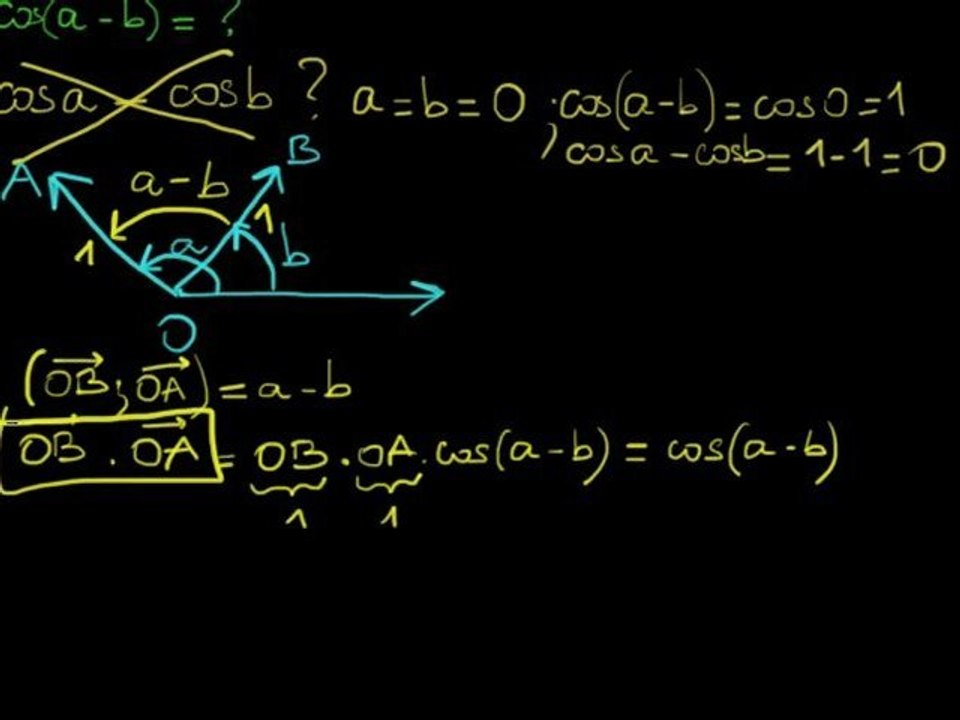 cos(a - b) = ?
cos a cos b ? a = b = 0 ; cos(a-b) = cos 0 = 1
cos a - cos b = 1 - 1 = 0
A a - b B
1 a 1 b
O
(OB ; OA) = a - b
OB . OA = OB . OA . cos(a - b) = cos(a - b)
1 1